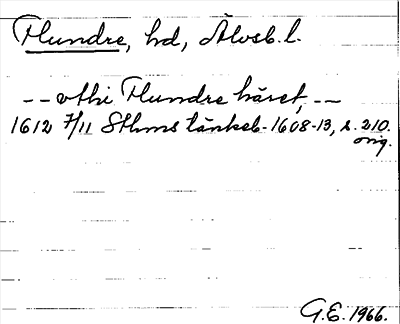 Flundre, hd, Älvsb. l.
-- vthi Flundre häret, --
1612 7/11 Sthms tänkeb. 1608-13, s. 210.
orig.
G.E. 1966.